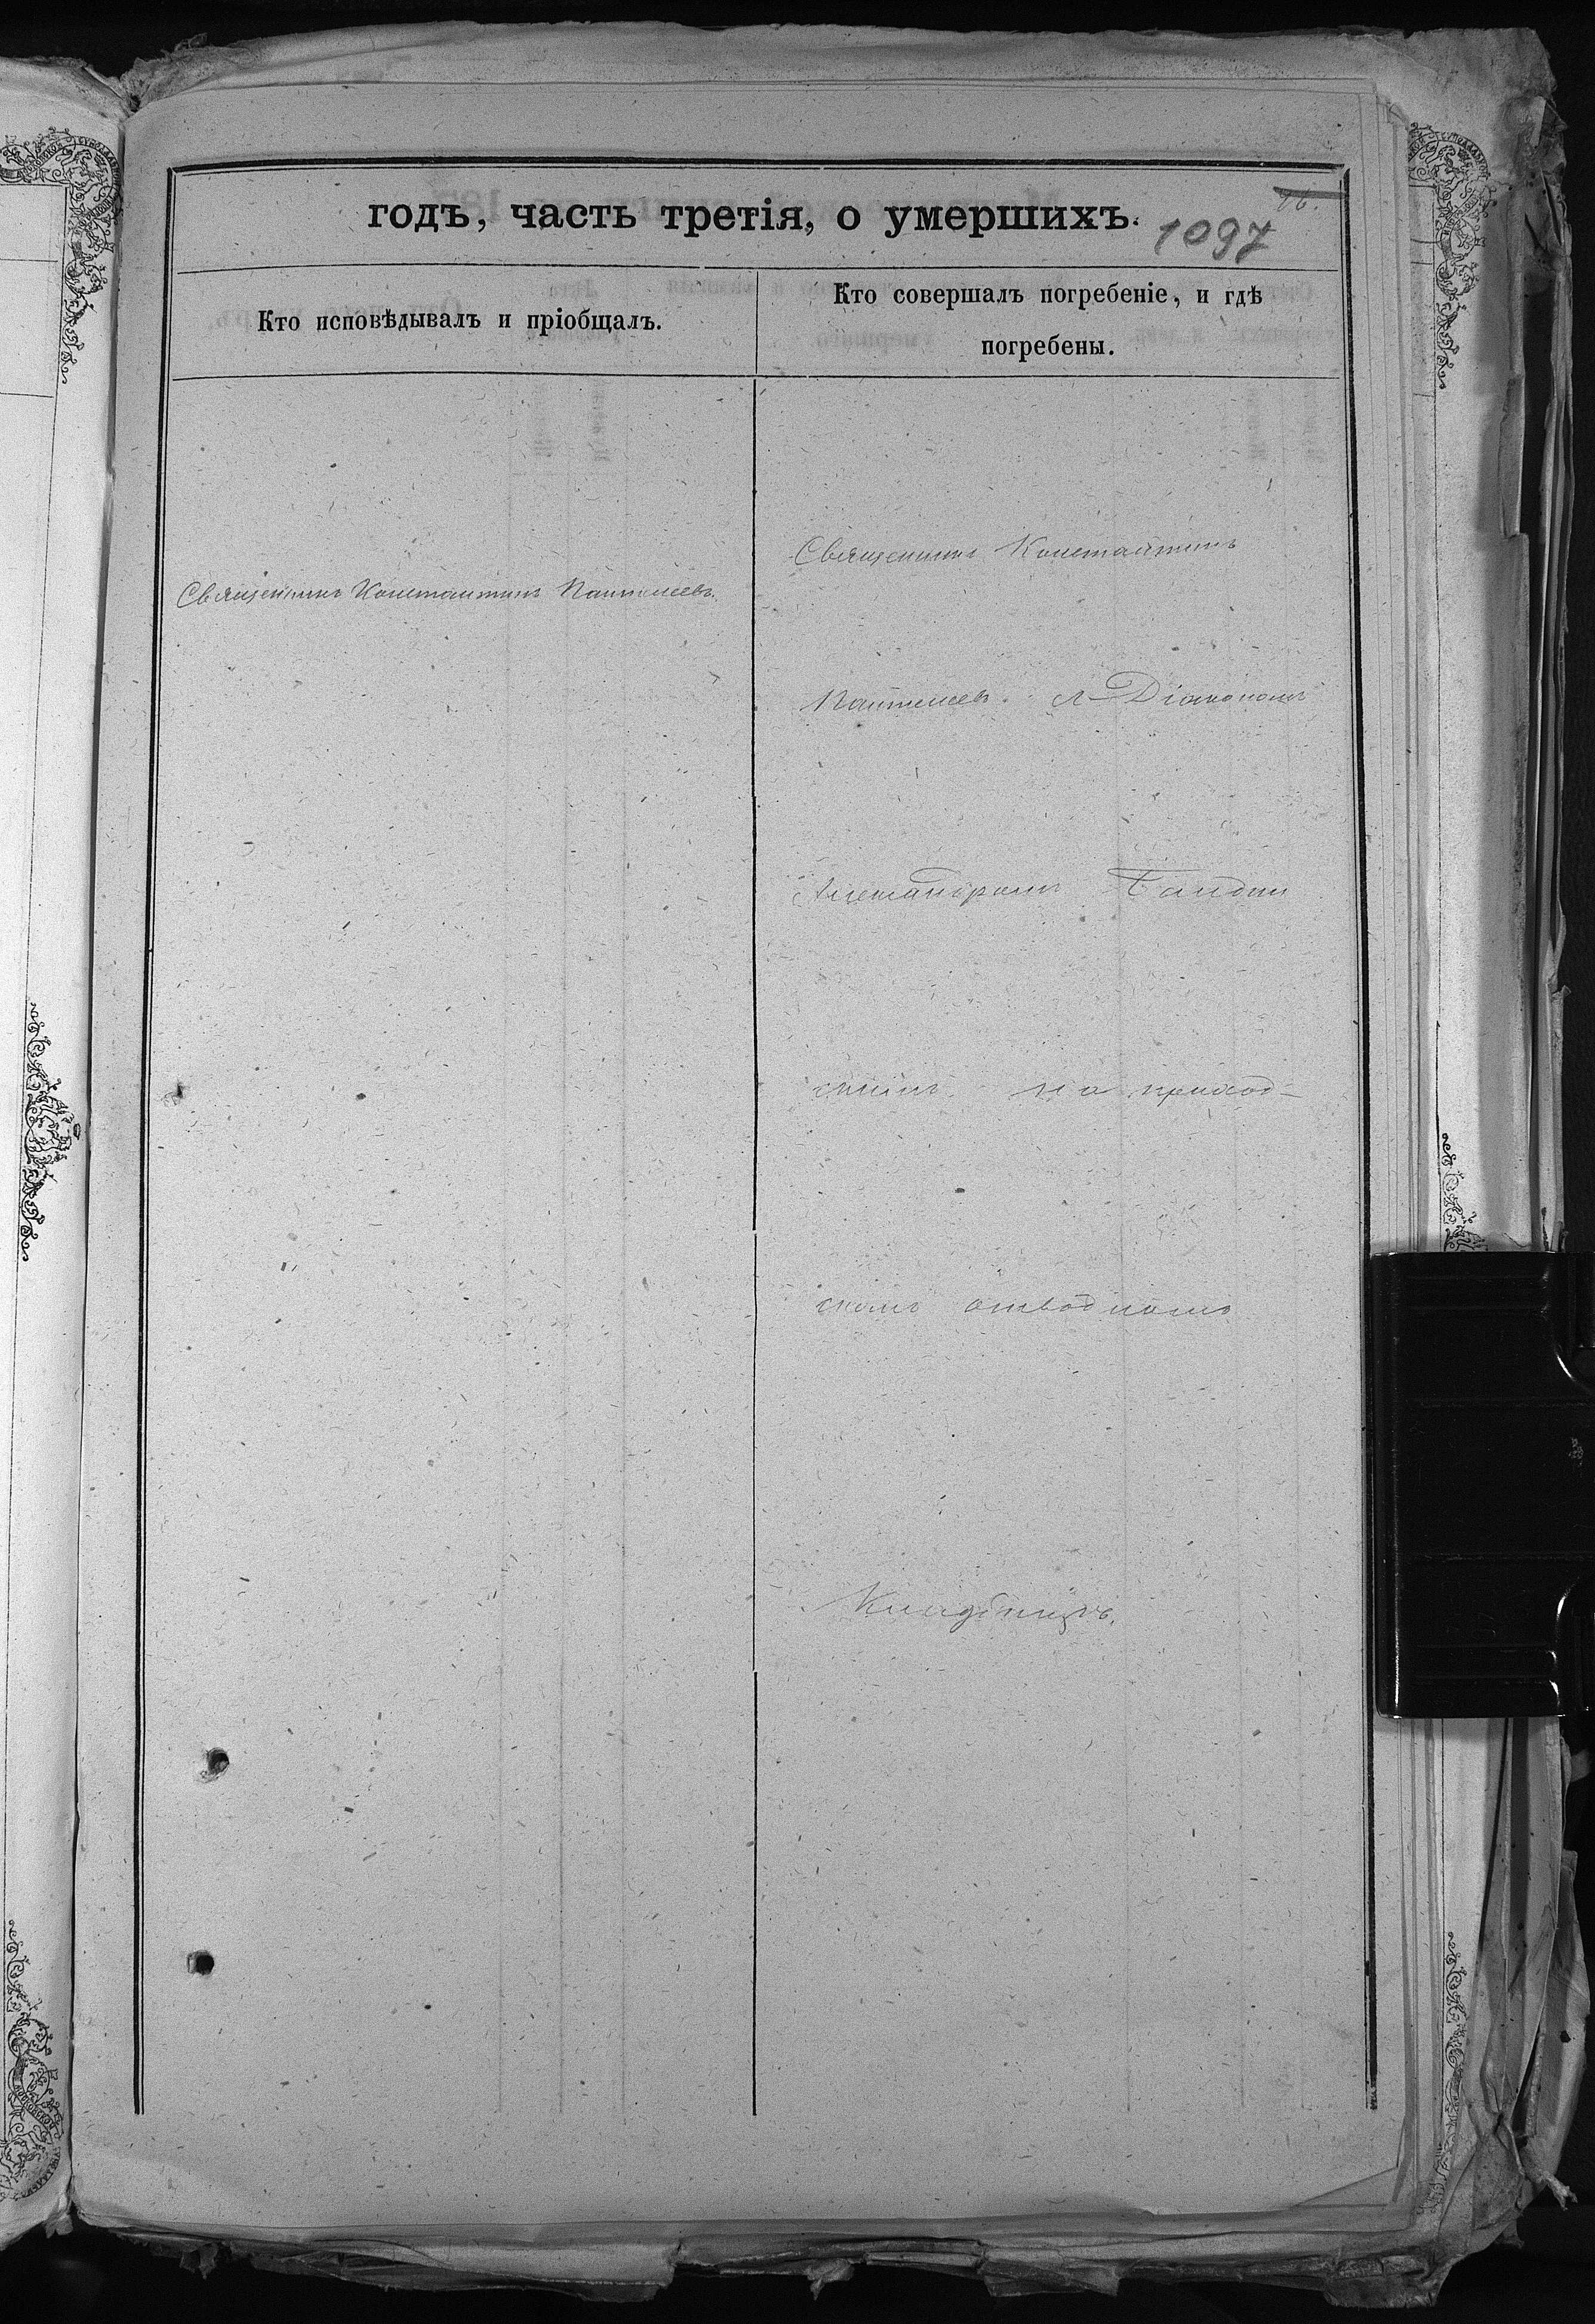 годъ, часть третія, о умершихъ.
1097
Кто исповѣдывалъ и пріобщалъ.
Кто совершалъ погребеніе, и гдѣ
погребены.
Священникъ Константинъ Пантелеевъ.
Священникъ Константинъ
Пантелеевъ. съ Діакономъ
Александромъ
скимъ на приход-
скомъ отводномъ
Кладбищѣ.